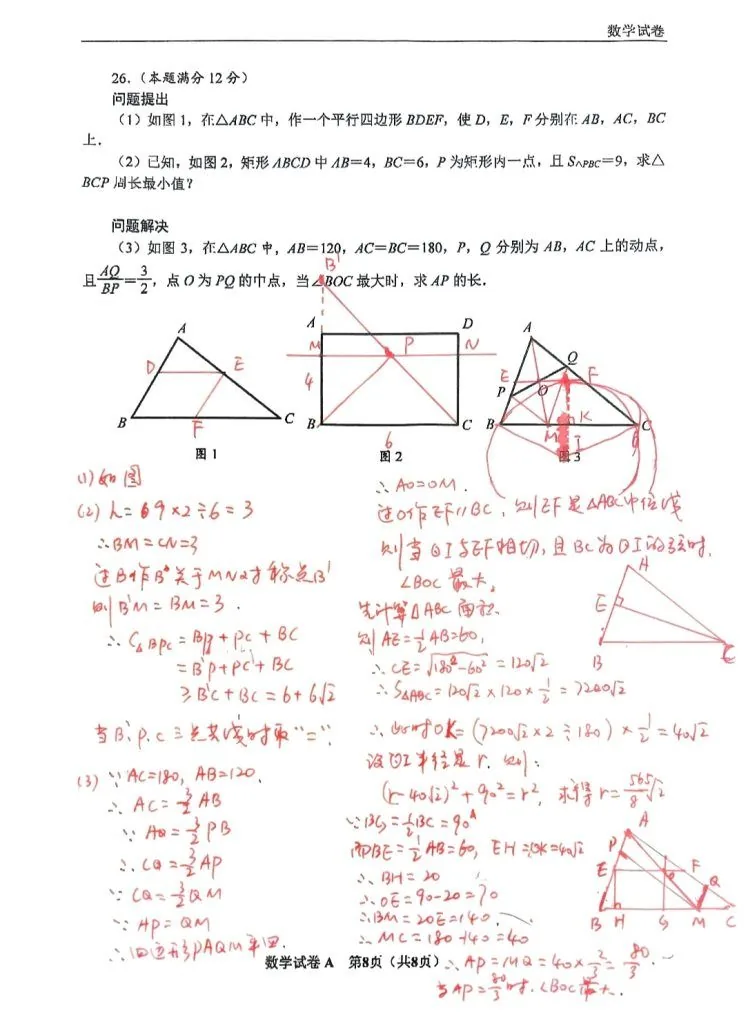 数学试卷
26.（本题满分 12 分）
问题提出
（1）如图 1，在△ABC 中，作一个平行四边形 BDEF，使 D，E，F 分别在 AB，AC，BC
上．
（2）已知，如图 2，矩形 ABCD 中 AB＝4，BC＝6，P 为矩形内一点，且 S△PBC＝9，求△
BCP 周长最小值？
问题解决
（3）如图 3，在△ABC 中，AB＝120，AC＝BC＝180，P，Q 分别为 AB，AC 上的动点，
且 AQ/BP＝3/2，点 O 为 PQ 的中点，当∠BOC 最大时，求 AP 的长．
B'
A D
M P N
4
B C
6
图 2
A
D E
B F C
图 1
A
Q
E F
P O
K
B M C
I
图 3
(1) 如图
(2) h = 9×2÷6 = 3
∴BM=CN=3
过B作B关于MN对称点B'
则B'M=BM=3.
∴C△BPC = BP+PC+BC
= B'P+PC+BC
≥B'C+BC = 6+6√2
当B'.P.C三点共线时取"=".
(3) ∵AC=180, AB=120.
∴AC=3/2 AB
∵AQ=3/2 PB
∴CQ=3/2 AP
∵CQ=3/2 QM
∵AP=QM
∴四边形PAQM平四.
∴AO=OM.
过O作EF∥BC，则EF是△ABC中位线
则当⊙I与EF相切，且BC为⊙I的弦时，
∠BOC最大。
先计算△ABC面积.
则AE=1/2AB=60,
∴CE=√180²-60² = 120√2
∴S△ABC=120√2×120×1/2=7200√2
∴此时OK=(7200√2×2÷180)×1/2=40√2
设⊙I半径是r. 则:
(r-40√2)²+90²=r², 求得r=565/8√2
∵BG=1/2BC=90
而BE=1/2AB=60, EH=OK=40√2
∴BH=20
∴OE=90-20=70
∴BM=2OE=140.
∴MC=180-140=40
∴AP=MQ=40×2/3=80/3.
当AP=80/3时.∠BOC最大.
A
E
B C
A
P
E F
Q
B H G M C
数学试卷 A 第8页（共8页）